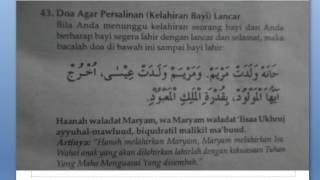 43. Doa Agar Persalinan (Kelahiran Bayi) Lancar
Bila Anda menunggu kelahiran seorang bayi dan Anda
berharap bayi segera lahir dengan lancar dan selamat, maka
bacalah doa di bawah ini sampai bayi lahir:
حَنَّهْ وَلَدَتْ مَرْيَمَ. وَمَرْيَمُ وَلَدَتْ عِيْسَى، اُخْرُجْ
اَيُّهَا الْمَوْلُوْدُ، بِقُدْرَةِ الْمَلِكِ الْمَعْبُوْدِ.
Haanah waladat Maryam, wa Maryam waladat 'Iisaa Ukhruj
ayyuhal-mawluud, biqudratil malikil ma'buud.
Artinya: "Hanah melahirkan Maryam, Maryam melahirkan Isa
Wahai anak yang akan dilahirkan lahirlah dengan kekuasaan Tuhan
Yang Maha Menguasai Yang disembah."